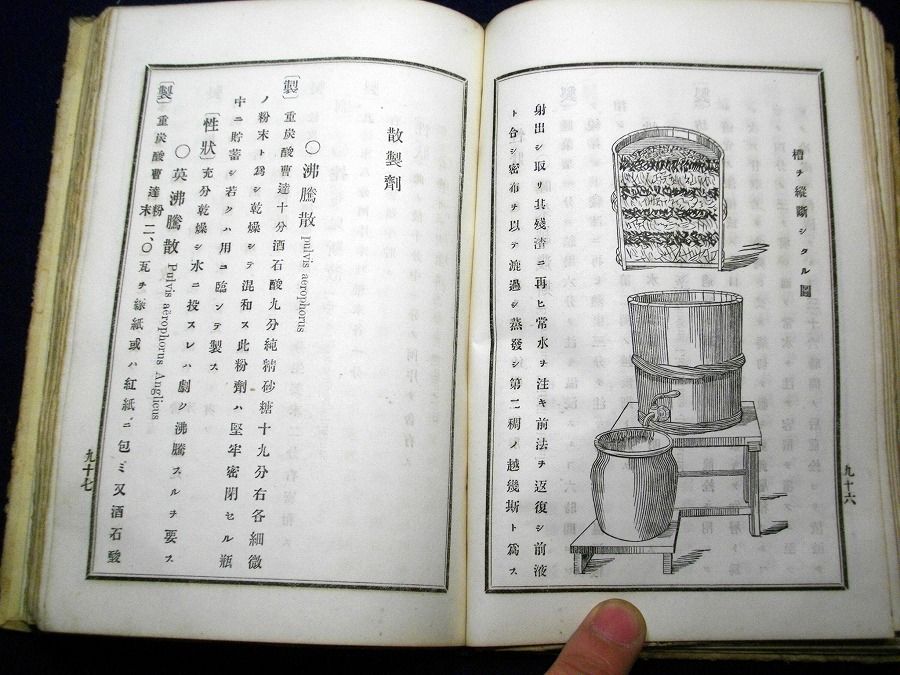 槽ヲ縱斷シタル圖
射出シ取リ其殘渣ニ再ヒ常水ヲ注キ前法ヲ返復シ前液
ト合シ密布ヲ以テ漉過シ蒸發シ第二稠ノ越幾斯ト爲ス
九十六
散製劑
〇沸騰散 pulvis aerophorus
〔製〕重炭酸曹達十分酒石酸九分純精砂糖十九分右各細微
ノ粉末ト爲シ乾燥シテ混和ス此粉劑ハ堅牢密閉セル瓶
中ニ貯蓄シ若クハ用ニ臨ンテ製ス
〔性狀〕充分乾燥シ水ニ投スレハ劇シク沸騰スルヲ要ス
〇英沸騰散 Pulvis aërophorus Anglicus
〔製〕重炭酸曹達粉末二、〇瓦ヲ綠紙或ハ紅紙ニ包ミ又酒石酸
九十七